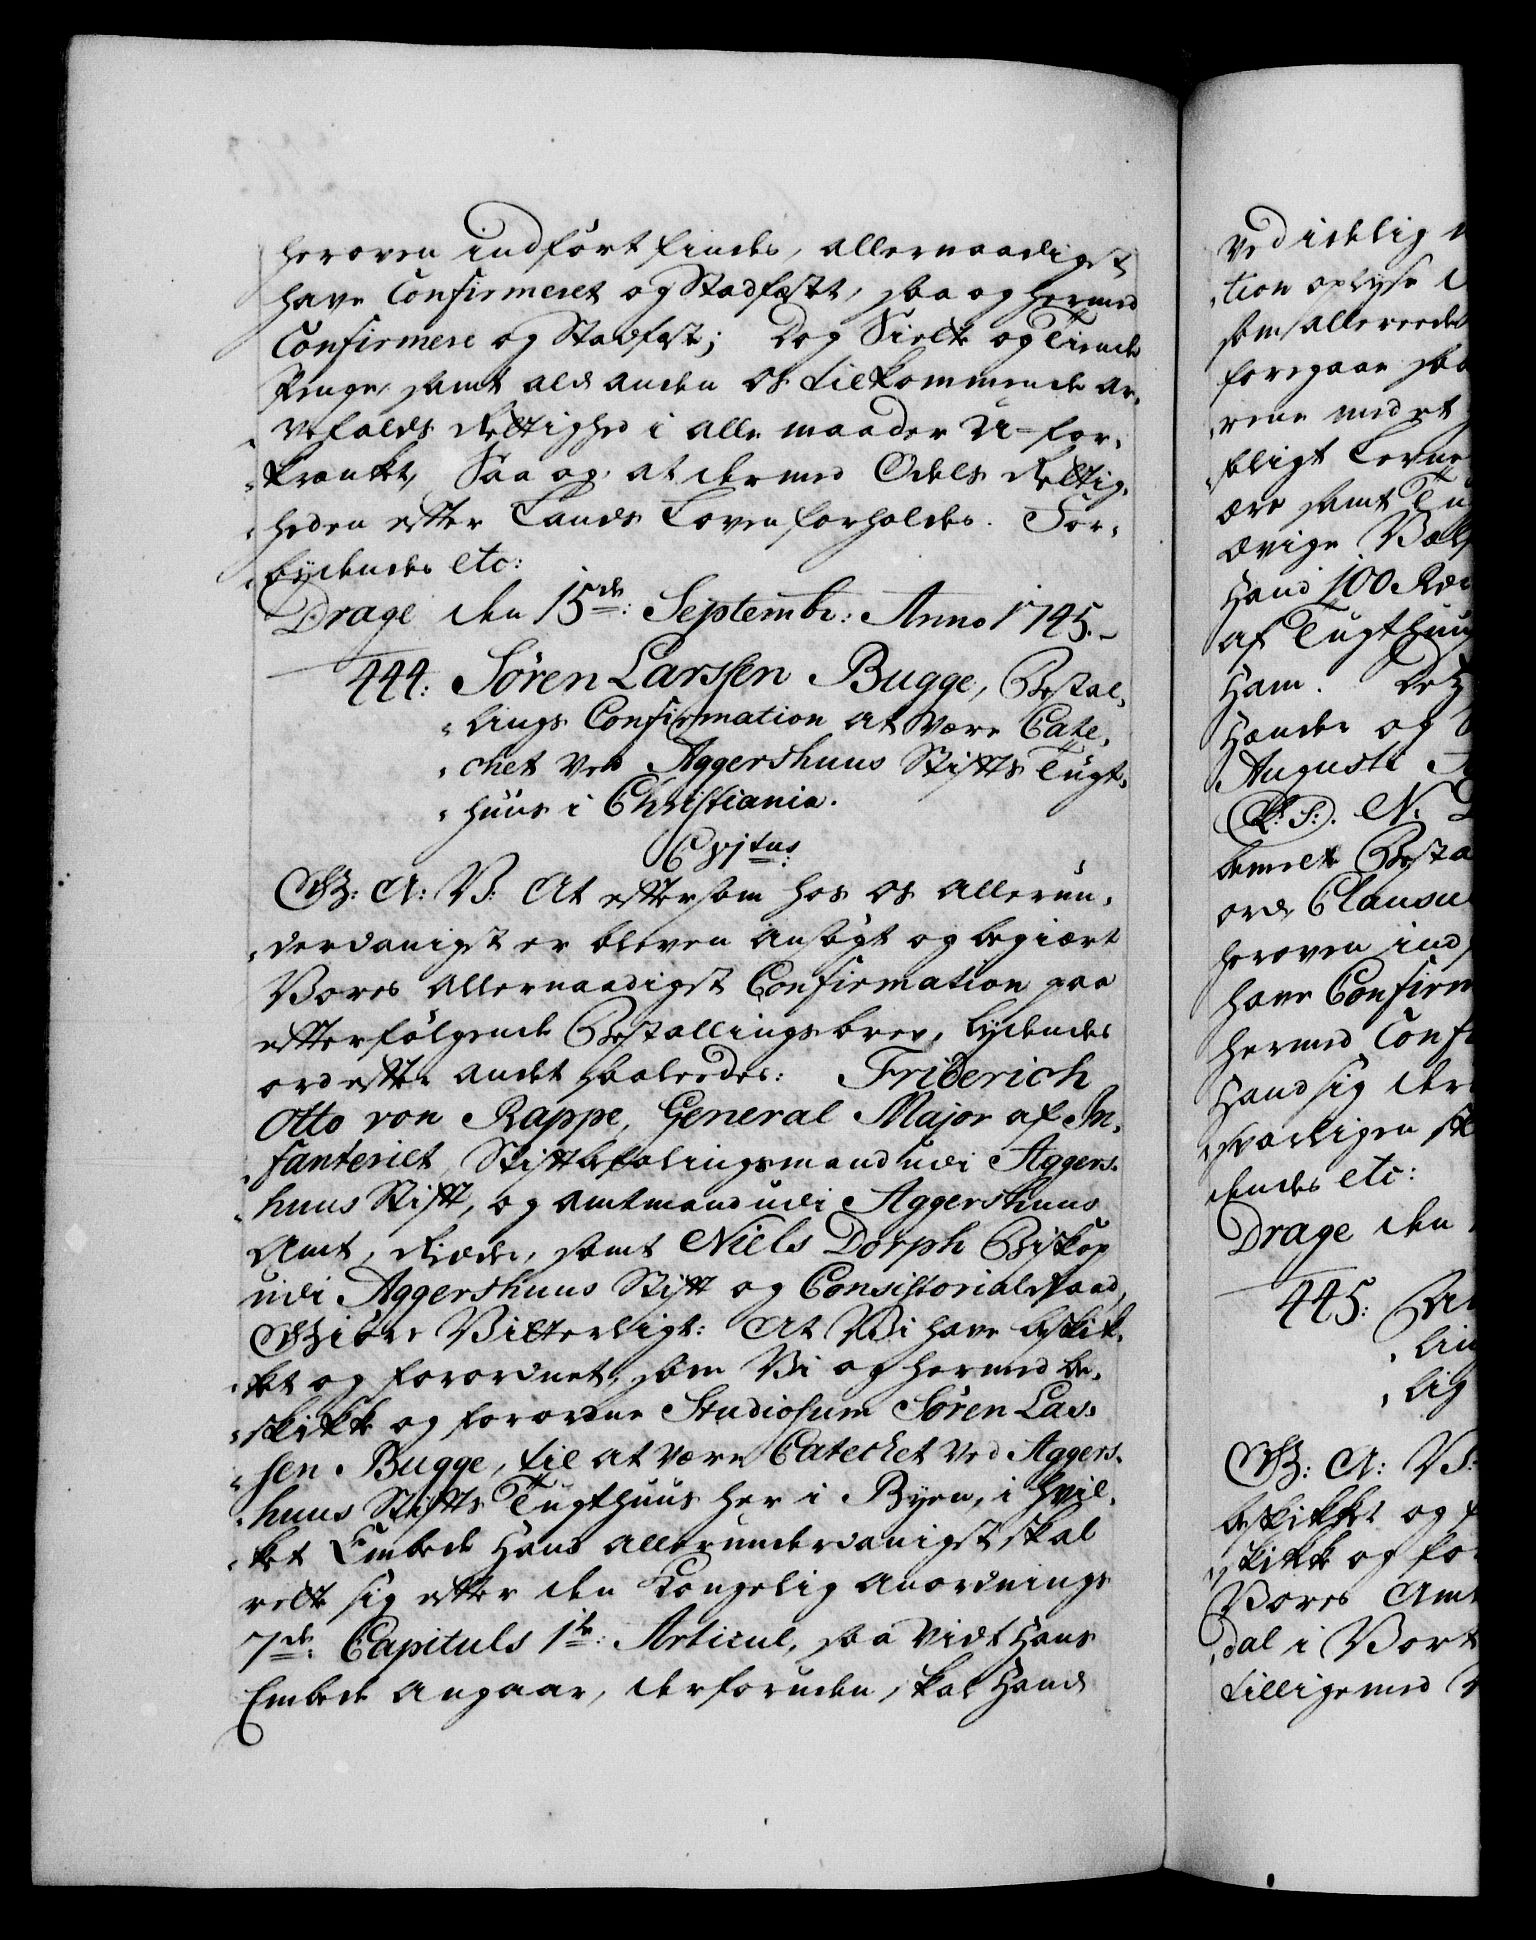 heroven indført findes, allernaadigst
have Confirmeret og Stadfæstt, saa og hermed
Confirmere og Stadfæste; Dog Siette og Tiende
Penge, samt ald anden os tilkommende ar-
vefalds Rettighed i alle maader U-for-
krænket, Saa og at dermed Odels Rettig-
heden efter Lands Loven forholdes. For-
bydendes etc:
Drage den 15de: Septembr: Anno 1745.
444: Søren Larssen Bugge, Bestal-
lings Confirmation at være Cate-
chet ved Aggershuus Stifts Tugt-
huus i Christiania.
C6tus:
G: A: V: At eftersom hos os allerun-
derdanigst er bleven ansøgt og begiært
Vores allernaadigst Confirmation paa
efterfølgende Bestallings brev, lydendes
ord efter andet saaledes: Friderich
Otto von Rappe, General Major af In-
fanteriet, Stiftbefalingsmand udi Aggers-
huus Stift, og Amtmand udi Aggershuus
Amt, samt Niels Dorph Biskop
udi Aggershuus Stift og Consistorial Raad,
Giøre Vitterligt: At Vi have beskik-
ket og forordnet, som Vi og hermed be-
skikke og forordne Studiosum Søren Las-
sen Bugge, til at være Catechet ved Aggers-
huus Stifts Tugthuus her i Byen, i hvil-
ket Embede Hand allerunderdanigst skal
rette sig efter den Kongelig Anordnings
7de: Capituls 1te: Articul, saa vidt Hans
Embede angaar, derforuden, skal Hand
ved idelig
tion oplyse
som allereede
foregaae saa
rene med et
bligt Levne
ære samt Tug
evige Vel
Hand 100 Rd
af Tugthuus
Ham.
Hænder og
Augusti
(L: S:). N. D
bemelte Besta
ord Clausu
heroven ind
have Confirm
hermed Conf
Hand sig der
svarligen sk
dendes etc:
Drage den
445:
lin
lig
G: A: V:
beskikket og f
skikke og for
Vores Amt
dal i Vort
tillige med